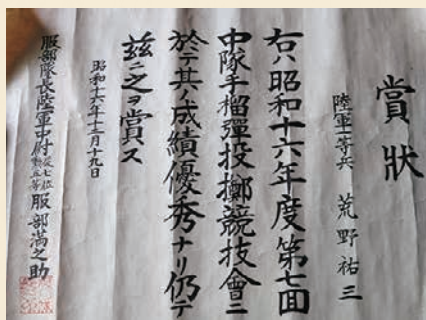 賞狀
陸軍一等兵 荒野祐三
右ハ昭和十六年度第七回
中隊手榴彈投擲競技會ニ
於テ其ノ成績優秀ナリ仍テ
茲ニ之ヲ賞ス
昭和十六年十二月十九日
服部隊長陸軍中尉從七位勲五等服部満之助